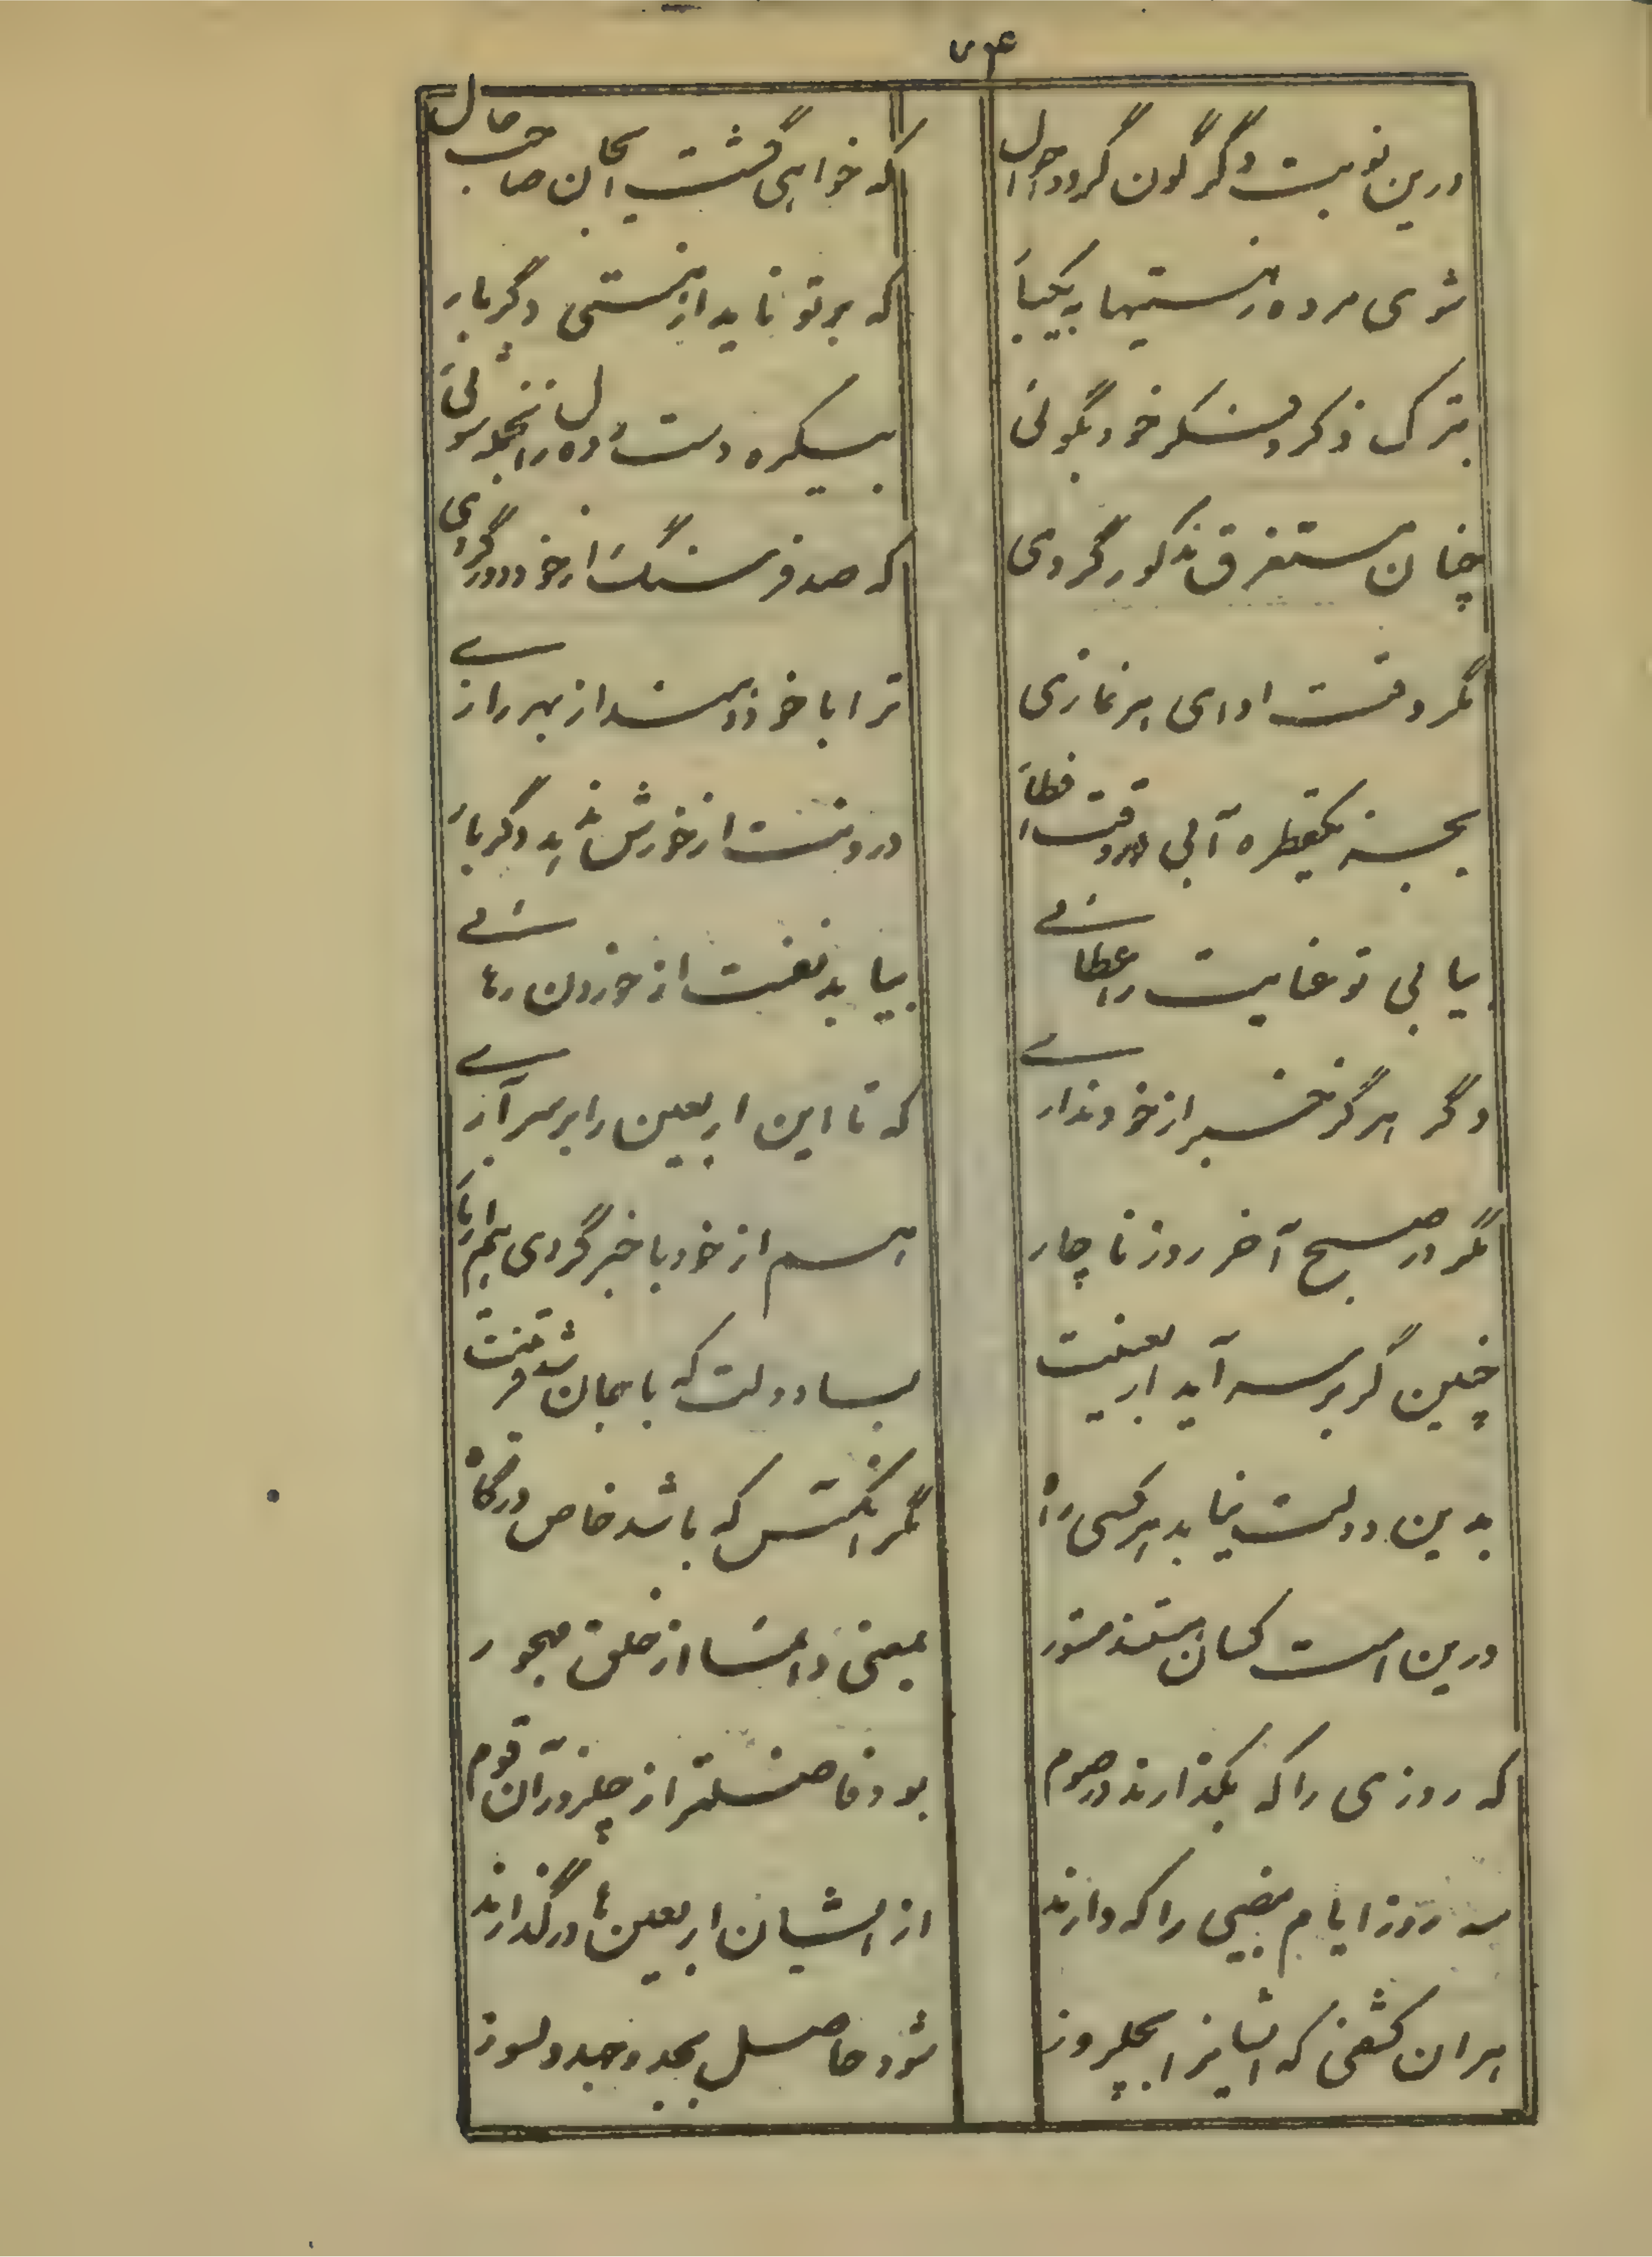 ۷۴
درین نوبت دگرگون گردد احوال
که خواهی گشت بجان صاحب حال
شوی مرده ز هستیها بیکبار
که بر تو ناید از هستی دگر بار
بترک ذکر و فکر خود بگوئی
بیکره دست و دل زانجمله شوئی
چنان مستغرق مذکور گردی
که صد فرسنگ از خود دور گردی
مگر وقت ادای هر نمازی
ترا با خود دهند از بهر رازی
بجز یکقطره آبی وقت افطار
درونت از خورش ناید دگر بار
بیابی تو عنایت را عطائی
بیابد نفست از خوردن رهائی
دگر هرگز خبر از خود نداری
که تا این اربعین را بر سر آری
مگر در صبح آخر روز ناچار
هم از خود با خبر گردی هم از یار
چنین گر بر سر آید اربعینت
بسا دولت که با جان شد قرینت
بدین دولت نیابد هر کسی راه
مگر آنکس که باشد خاص درگاه
درین امت کسان هستند مستور
بمعنی دایما از خلق مهجور
که روزی را که بگذارند در صوم
بود فاضلتر از چلروز آن قوم
سه روز ایام بیضی را که دارند
از ایشان اربعین‌ها درگذارند
هران کشفی که ایشانرا بچلروز
شود حاصل بجد و جهد و دلسوز